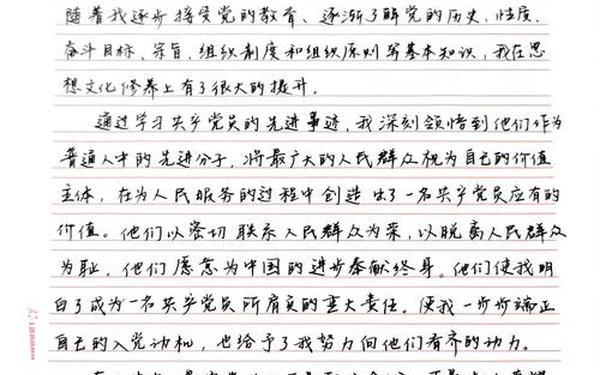 随着我逐步接受党的教育、逐渐了解党的历史、性质、
奋斗目标、宗旨、组织制度和组织原则等基本知识，我在思
想文化修养上有了很大的提升。
通过学习共产党员的先进事迹，我深刻领悟到他们作为
普通人中的先进分子，将最广大的人民群众视为自己的价值
主体，在为人民服务的过程中创造出了一名共产党员应有的
价值。他们以密切联系人民群众为荣，以脱离人民群众
为耻，他们愿意为中国的进步奉献终身。他们使我明
白了成为一名共产党员所肩负的重大责任。使我一步步端正
自己的入党动机，也给予了我努力向他们看齐的动力。